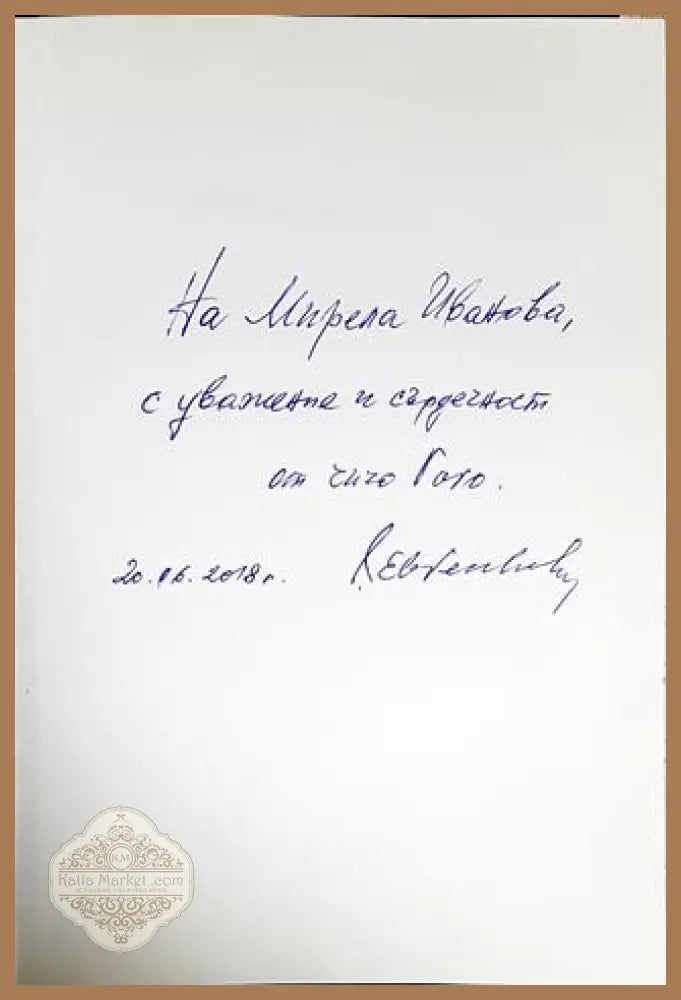 На Мирела Иванова,
с уважение и сърдечност
от чичо Гого.
20.06.2018 г.
KM
Kalia Market .com